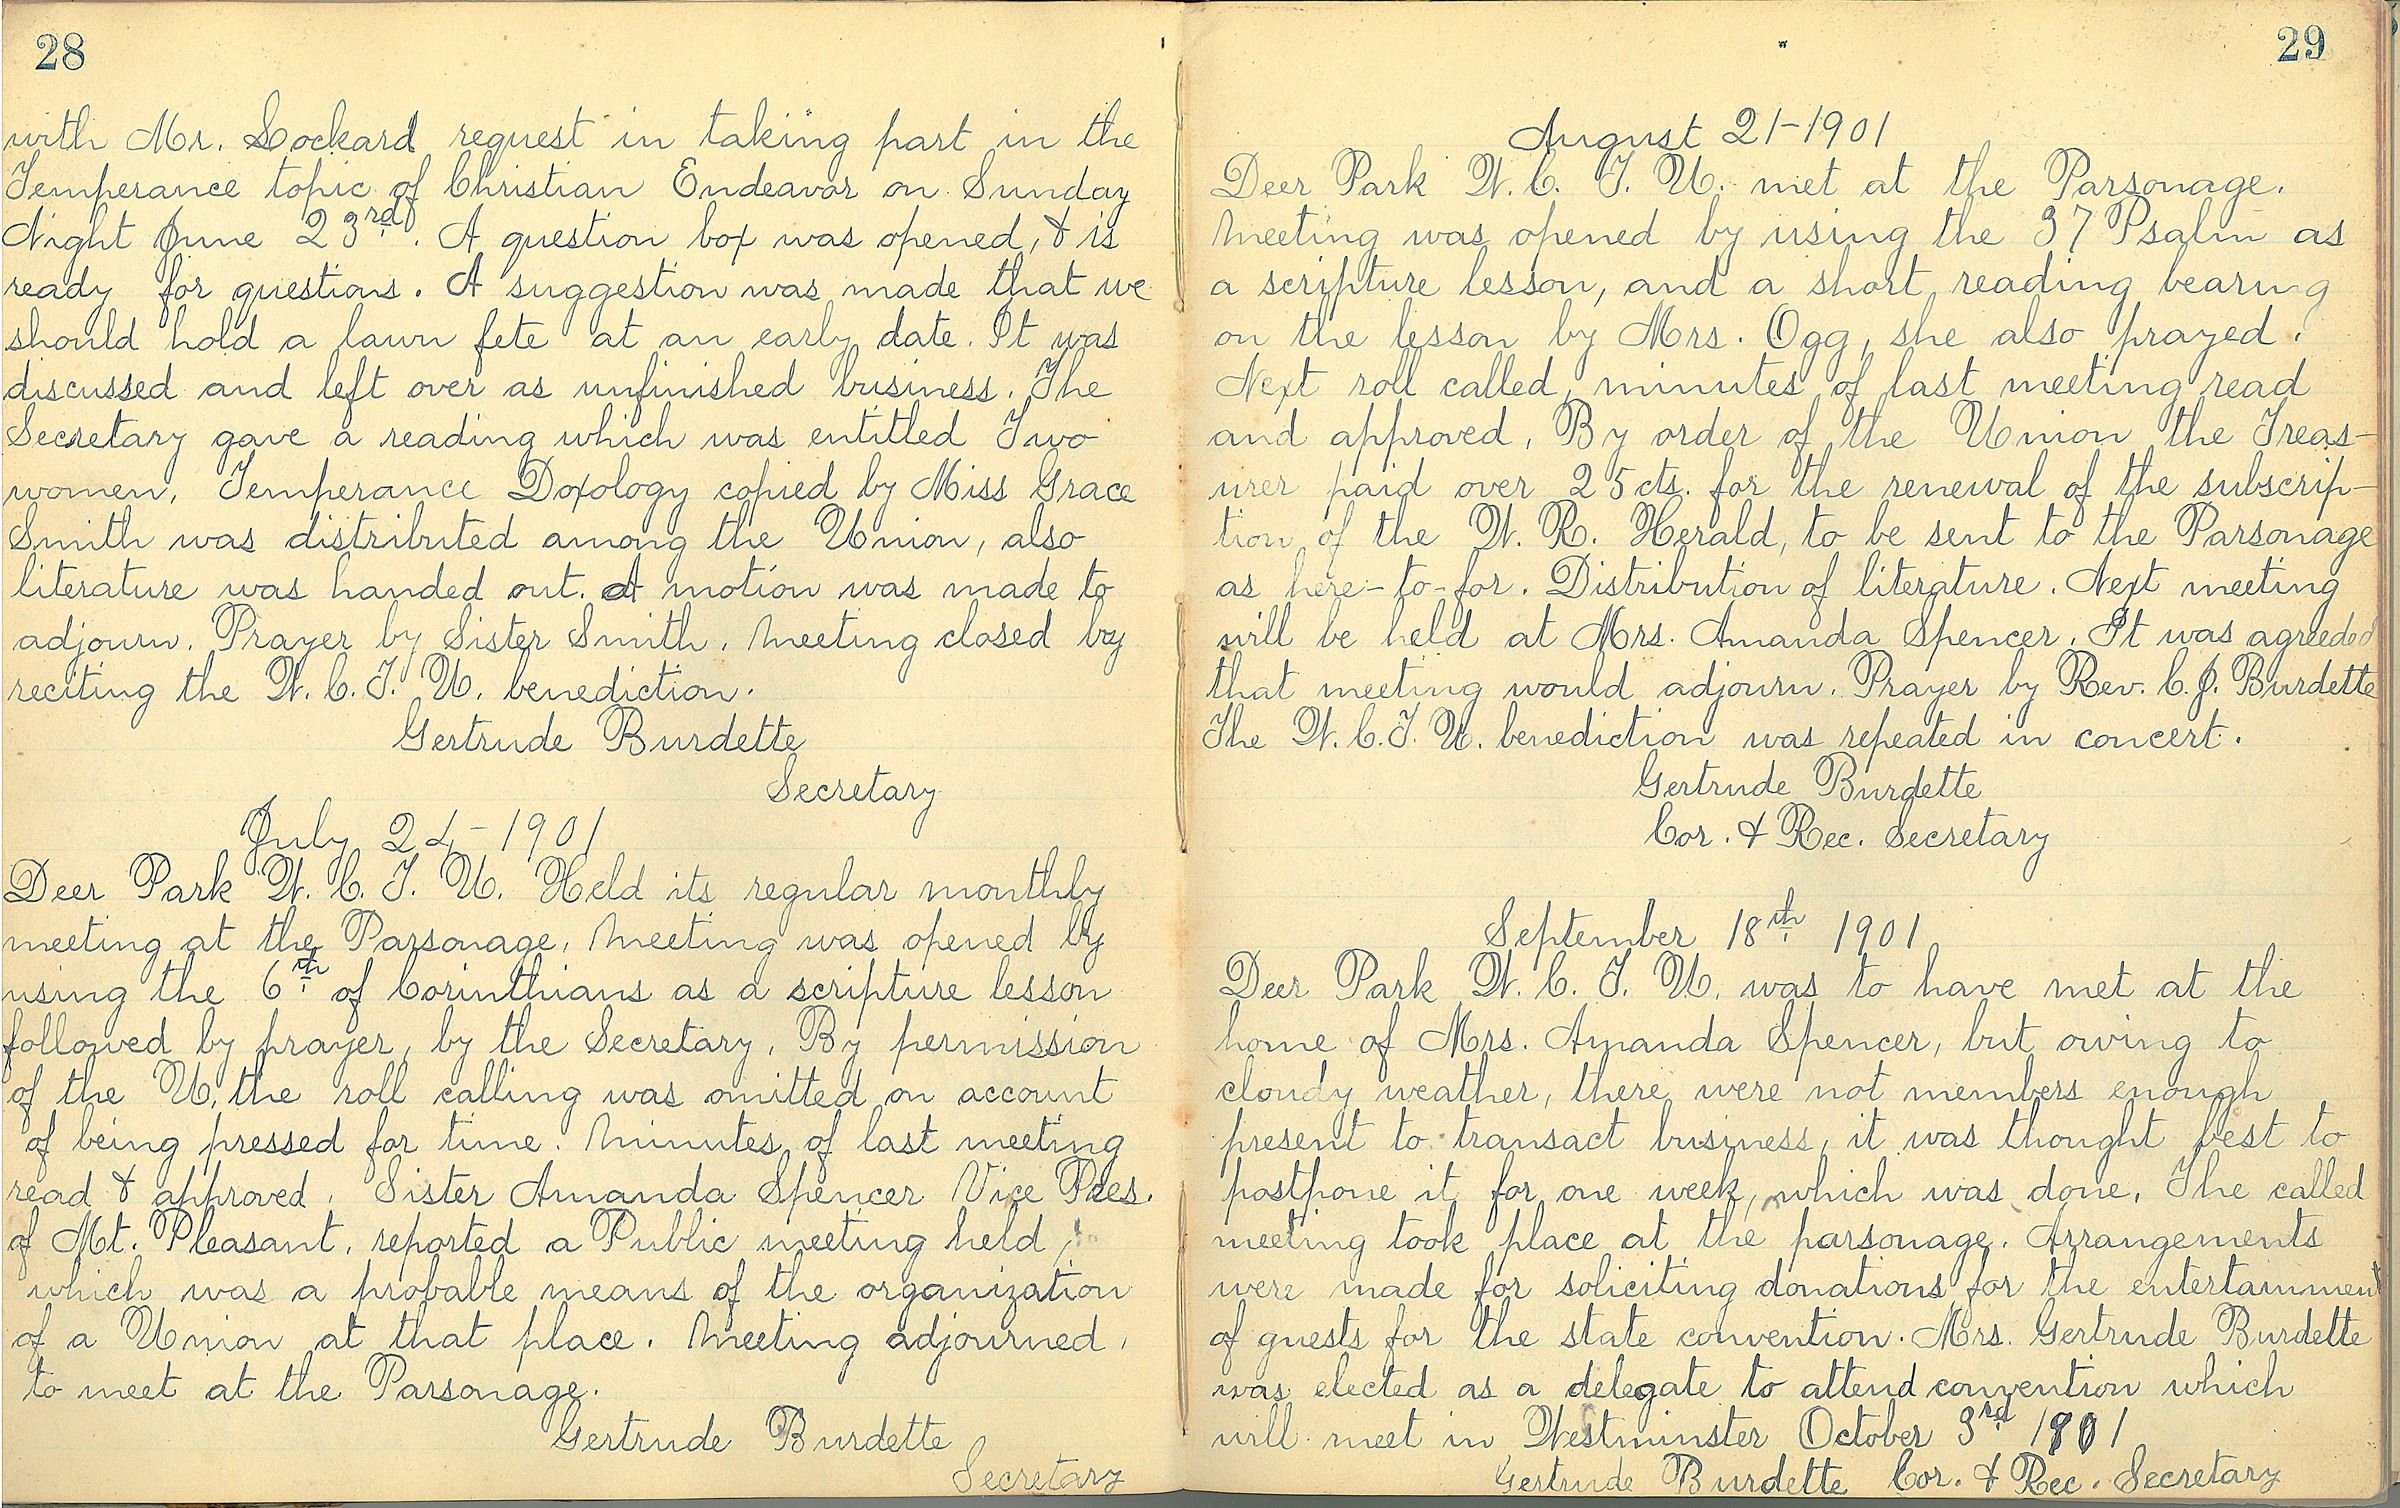 28
with Mr. Lockard request in taking part in the
Temperance topic of Christian Endeavor on Sunday
Night June 23rd. A question box was opened, & is
ready for questions. A suggestion was made that we
should hold a lawn fete at an early date. It was
discussed and left over as unfinished business. The
Secretary gave a reading which was entitled Two
women. Temperance Doxology copied by Miss Grace
Smith was distributed among the Union, also
literature was handed out. A motion was made to
adjourn. Prayer by Sister Smith. Meeting closed by
reciting the W.C.T.U. benediction.
Gertrude Burdette
Secretary
July 24-1901
Deer Park W.C.T.U. Held its regular monthly
meeting at the Parsonage. Meeting was opened by
using the 6th of Corinthians as a scripture lesson
followed by prayer, by the Secretary. By permission
of the U. the roll calling was omitted on account
of being pressed for time. Minutes of last meeting
read & approved. Sister Amanda Spencer Vice Pres.
of Mt. Pleasant, reported a Public meeting held,
which was a probable means of the organization
of a Union at that place. Meeting adjourned,
to meet at the Parsonage.
Gertrude Burdette
Secretary
29
August 21-1901
Deer Park W.C.T.U. met at the Parsonage.
Meeting was opened by using the 37 Psalm as
a scripture lesson, and a short reading bearing
on the lesson by Mrs. Ogg, she also prayed.
Next roll called, minutes of last meeting read
and approved. By order of the Union the Treas-
urer paid over 25cts. for the renewal of the subscrip-
tion of the W. R. Herald, to be sent to the Parsonage
as here-to-for. Distribution of literature. Next meeting
will be held at Mrs. Amanda Spencer. It was agreeded
that meeting would adjourn. Prayer by Rev. C.J. Burdette
The W.C.T.U. benediction was repeated in concert.
Gertrude Burdette
Cor. & Rec. Secretary
September 18th 1901
Deer Park W.C.T.U. was to have met at the
home of Mrs. Amanda Spencer, but owing to
cloudy weather, there were not members enough
present to transact business, it was thought best to
postpone it for one week, which was done. The called
meeting took place at the parsonage. Arrangements
were made for soliciting donations for the entertainment
of guests for the state convention. Mrs. Gertrude Burdette
was elected as a delegate to attend convention which
will meet in Westminster October 3rd 1901
Gertrude Burdette Cor. & Rec. Secretary